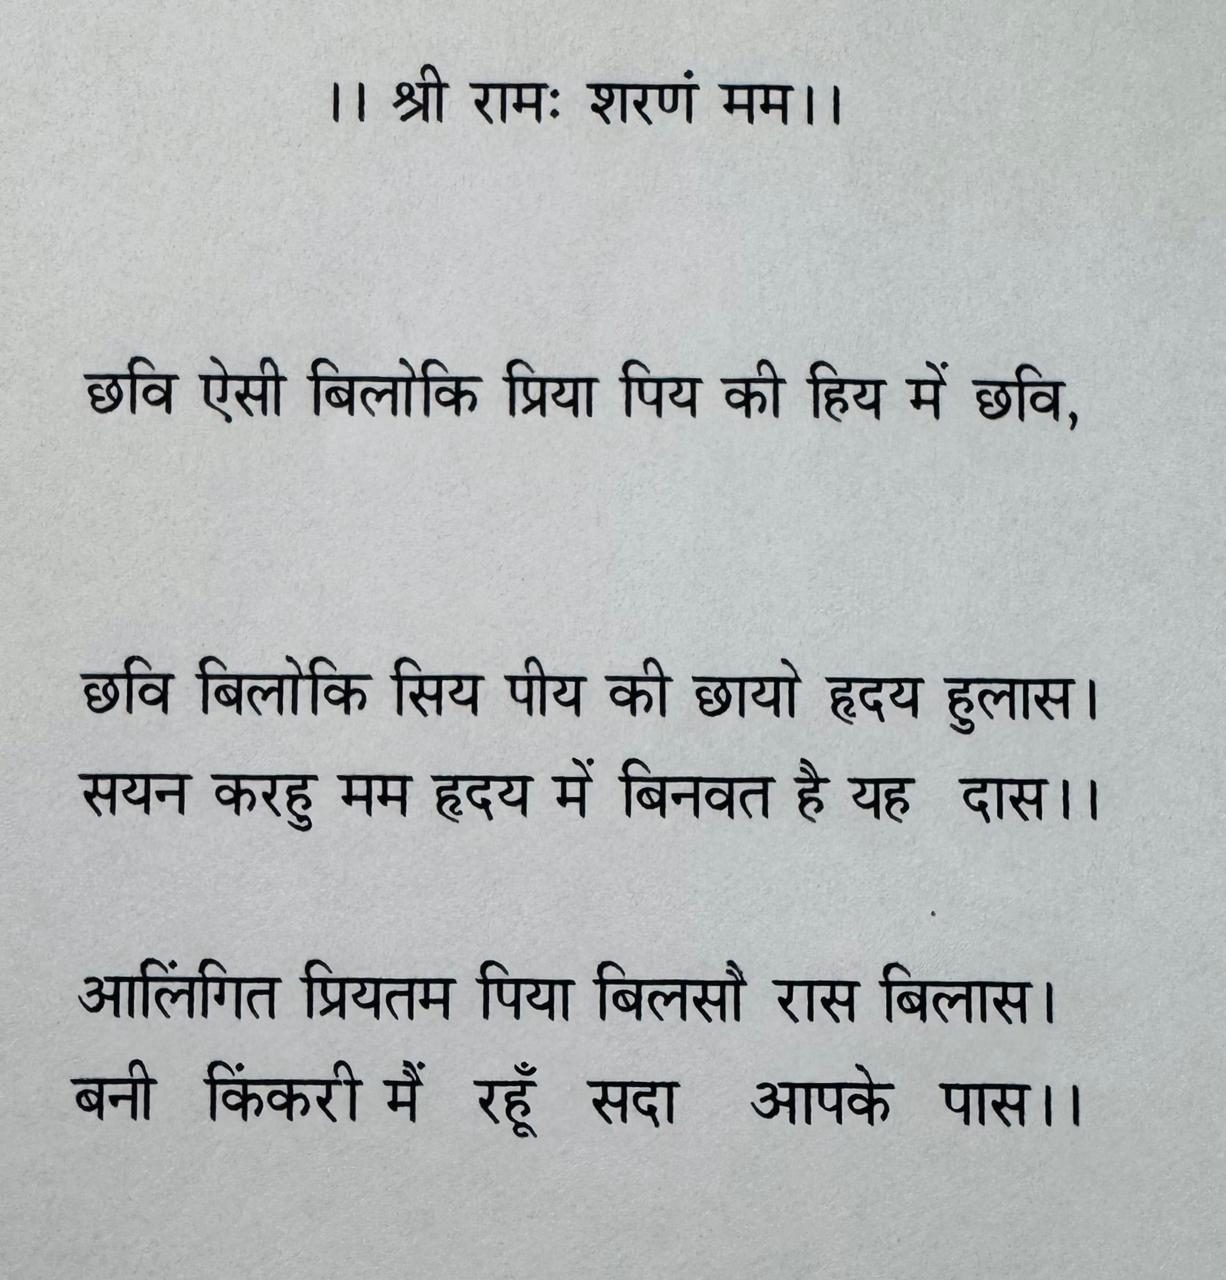 ।। श्री रामः शरणं मम।।
छवि ऐसी बिलोकि प्रिया पिय की हिय में छवि,
छवि बिलोकि सिय पीय की छायो हृदय हुलास।
सयन करहु मम हृदय में बिनवत है यह दास।।
आलिंगित प्रियतम पिया बिलसौ रास बिलास।
बनी किंकरी मैं रहूँ सदा आपके पास।।